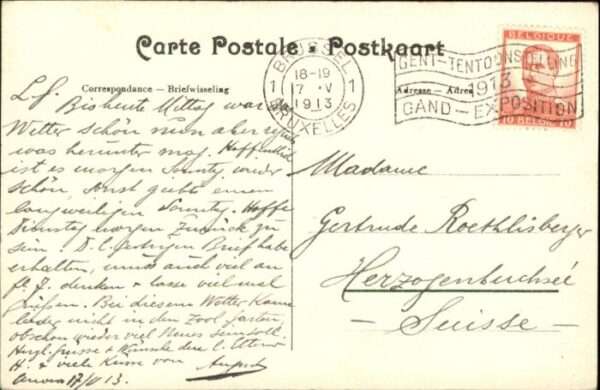 Carte Postale Postkaart
BRUSSEL
1 18-19 1
17 V
1913
BRUXELLES
GENT-TENTOONSTELLING
1913
GAND-EXPOSITION
BELGIQUE
10 BELGIË 10
Correspondance — Briefwisseling
Adresse — Adres
Bis heute Mittag war das
Wetter schön nun aber
was herunter mag. Hoffentlich
ist es morgen Sonntag wieder
schön, sonst giebt's einen
langweiligen Sonntag. Hoffe
Sonntag morgen zurück zu
sein. D. l. gestrigen Brief habe
erhalten, muss auch viel an
denken + lasse viel mal
grüssen. Bei diesem Wetter kann
leider nicht in den Zool. Garten
obschon wieder viel Neues sein soll.
Herzl. Grüsse + Wünsche l. Eltern
H. + viele Küsse von August
17/V 13.
Madame
Gertrude Roethlisberger
Herzogenbuchsée
— Suisse —